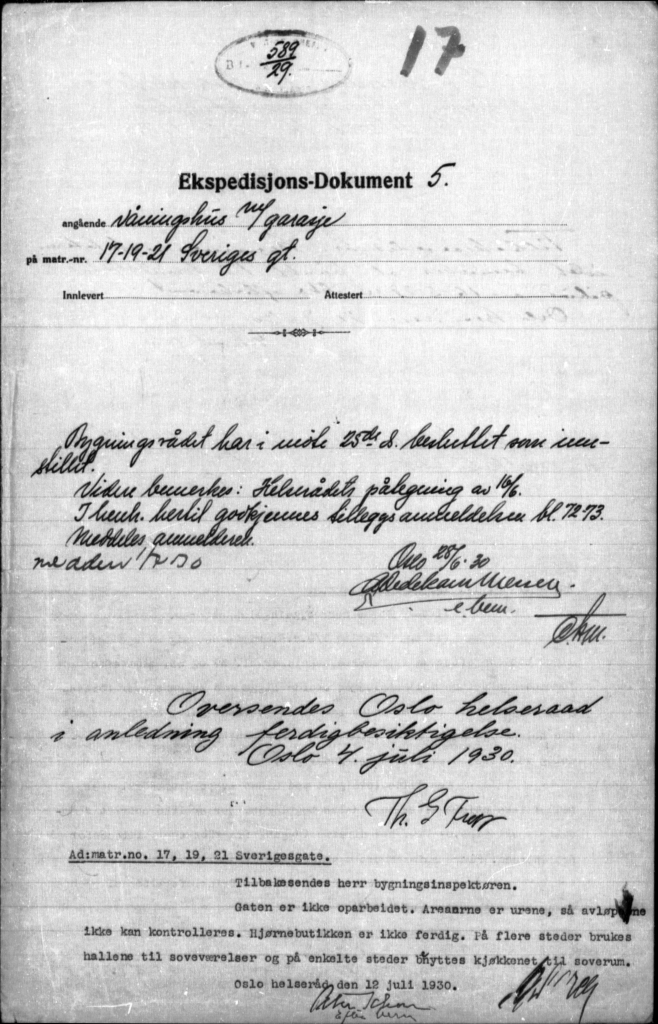 589
29.
17
Ekspedisjons-Dokument 5.
angående våningshus m/garasje
på matr.-nr. 17-19-21 Sveriges gt.
Innlevert Attestert
Bygningsrådet har i møte 25de ds. besluttet som inn-
stillet.
Videre bemerkes: Helserådets påtegning av 16/6.
I henh. hertil godkjennes tilleggsanmeldelsen bl. 72-73.
Meddeles anmelderen.
Oslo 28/6-30
Oversendes Oslo helseraad
i anledning ferdigbesiktigelse.
Oslo 4. juli 1930.
Th. G
Ad:matr.no. 17, 19, 21 Sverigesgate.
Tilbakesendes herr bygningsinspektøren.
Gaten er ikke oparbeidet. Arealerne er urene, så avløpene
ikke kan kontrolleres. Hjørnebutikken er ikke ferdig. På flere steder brukes
hallene til soveværelser og på enkelte steder bnyttes kjøkkenet til soverum.
Oslo helseråd den 12 juli 1930.